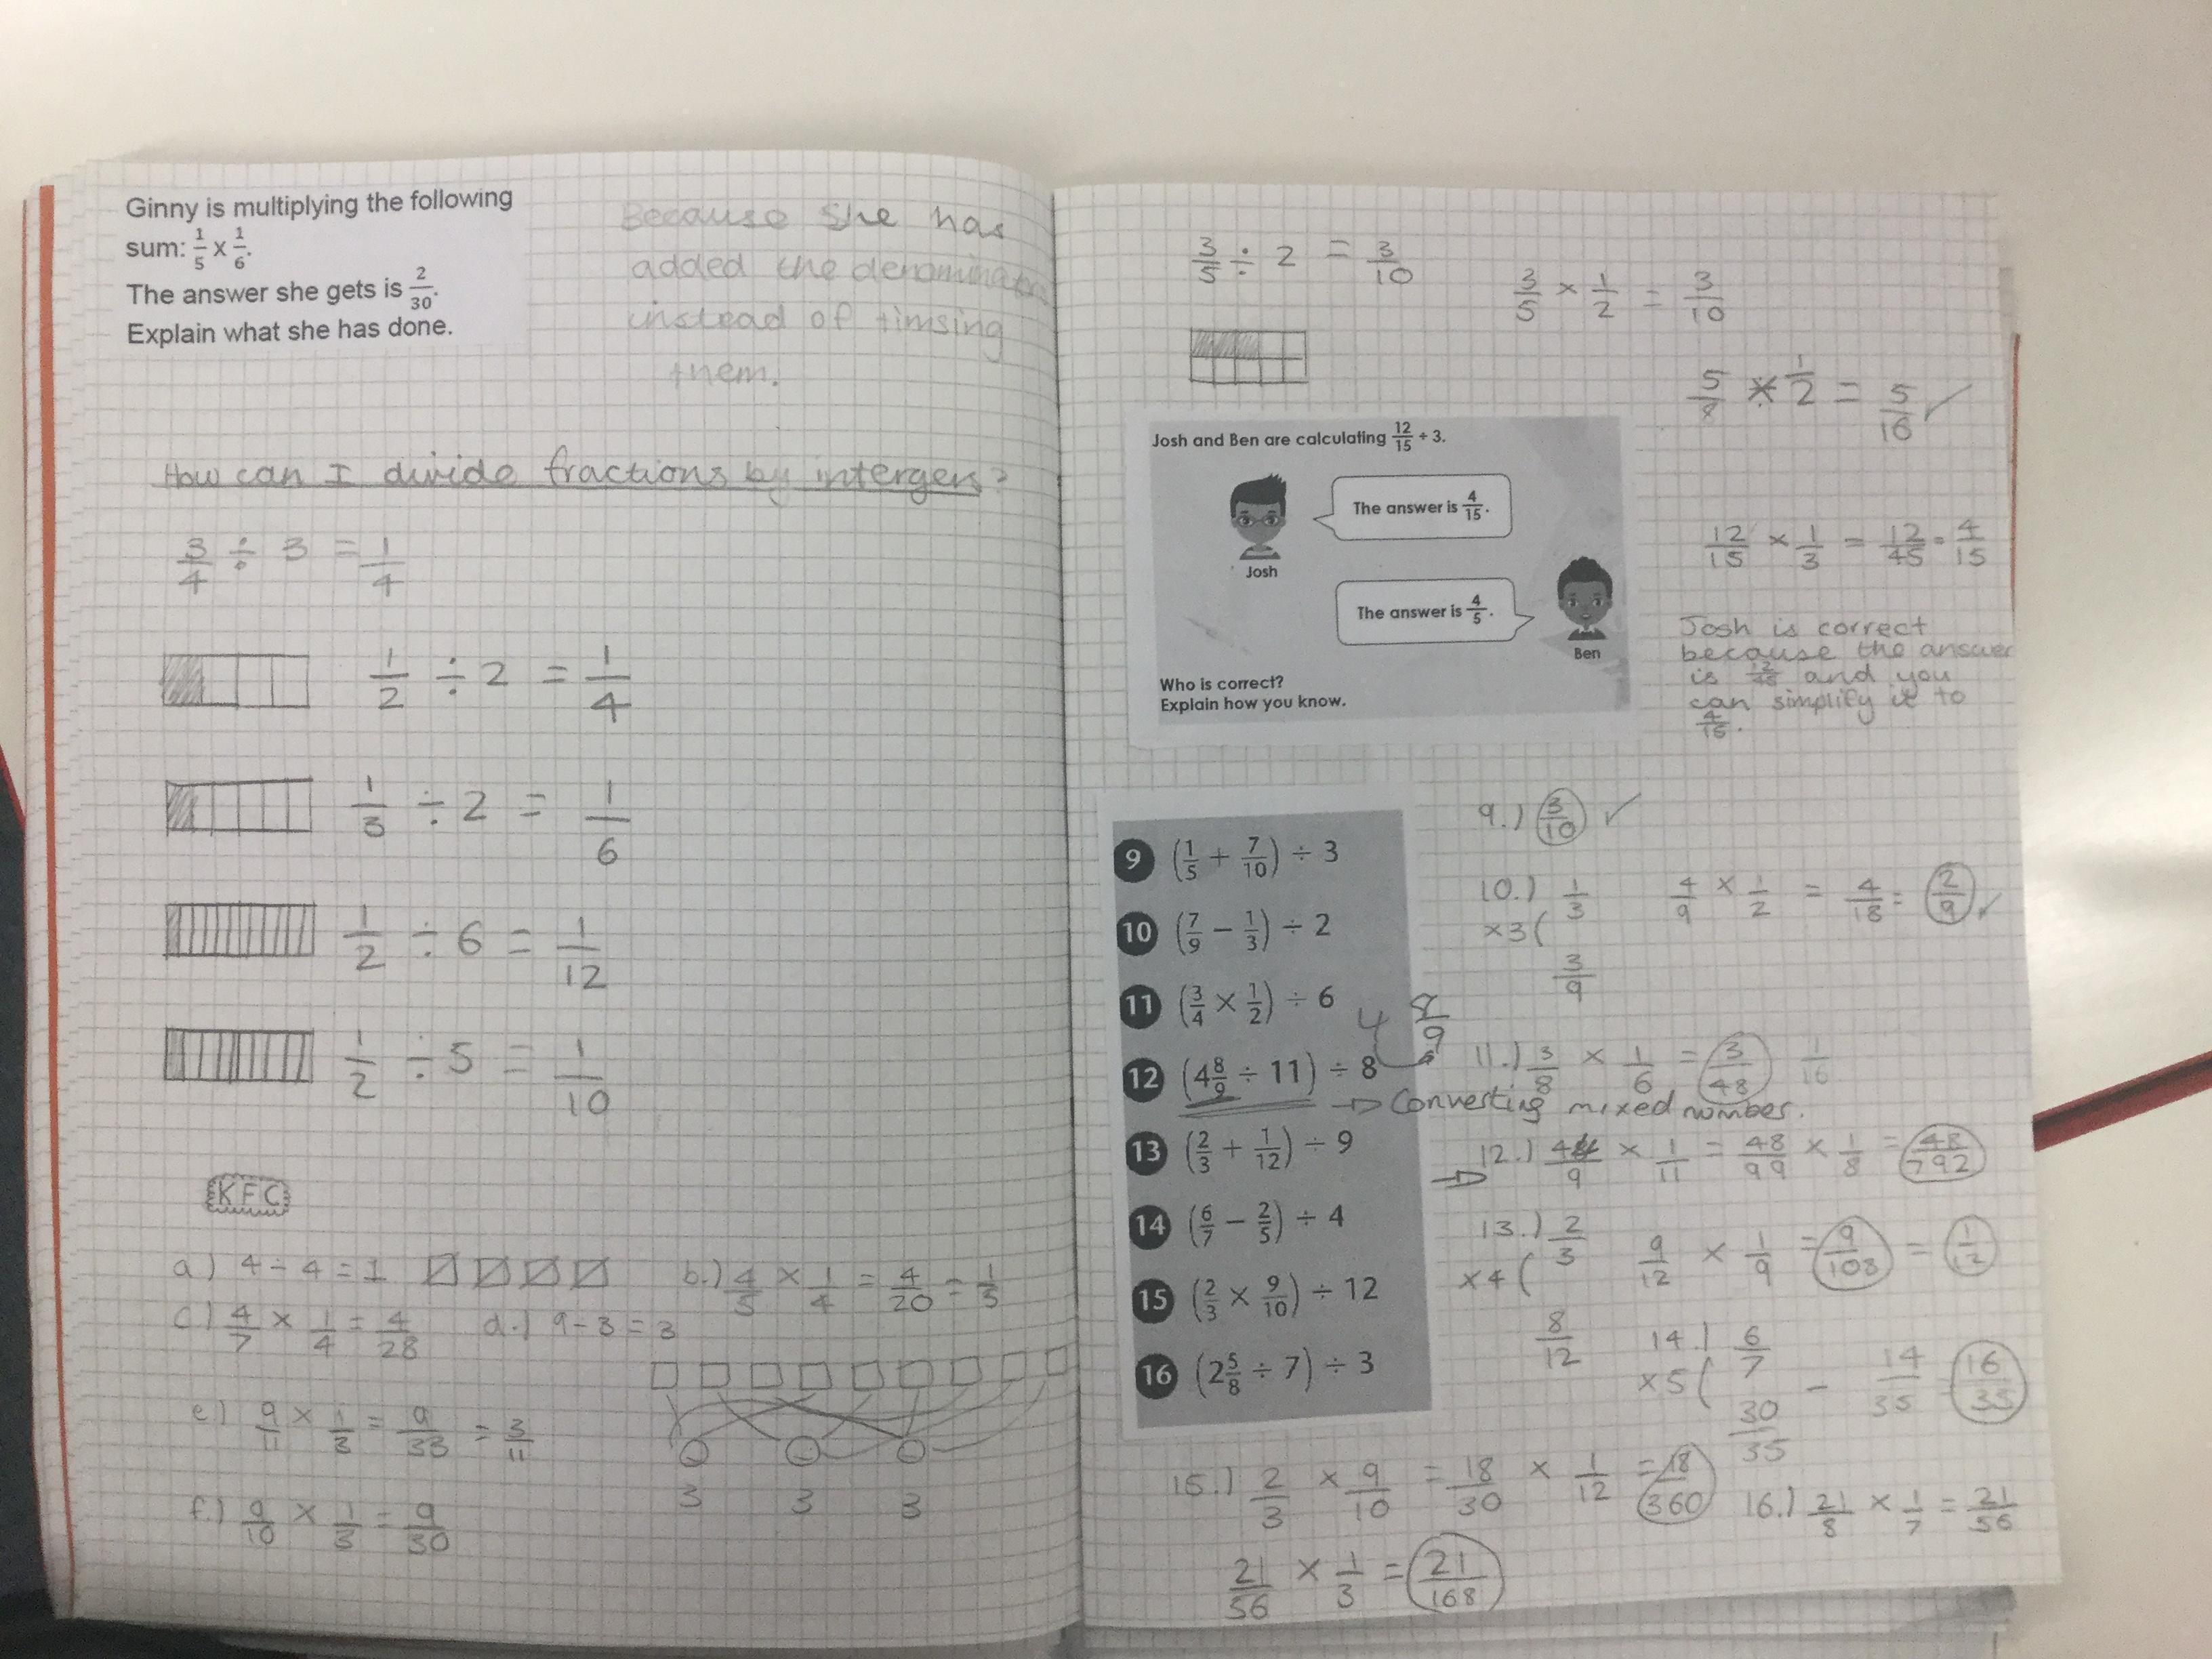 Ginny is multiplying the following
sum: 1/5 x 1/6.
The answer she gets is 2/30.
Explain what she has done.
Because she has
added the denominators
instead of timsing
them.
How can I divide fractions by intergers?
3/4 ÷ 3 = 1/4
1/2 ÷ 2 = 1/4
1/3 ÷ 2 = 1/6
1/2 ÷ 6 = 1/12
1/2 ÷ 5 = 1/10
KFC
a) 4 ÷ 4 = 1
b.) 4/5 × 1/4 = 4/20 = 1/5
c) 4/7 × 1/4 = 4/28
d.) 9 ÷ 3 = 3
e) 9/11 × 1/3 = 9/33 = 3/11
3 3 3
f.) 9/10 × 1/3 = 9/30
3/5 ÷ 2 = 3/10
3/5 × 1/2 = 3/10
5/8 × 1/2 = 5/16 ✓
Josh and Ben are calculating 12/15 ÷ 3.
The answer is 4/15.
Josh
The answer is 4/5.
Ben
Who is correct?
Explain how you know.
12/15 × 1/3 = 12/45 = 4/15
Josh is correct
because the answer
is 12/45 and you
can simplify it to
4/15.
9 (1/5 + 7/10) ÷ 3
10 (7/9 − 1/3) ÷ 2
11 (3/4 × 1/2) ÷ 6
12 (4 8/9 ÷ 11) ÷ 8
13 (2/3 + 1/12) ÷ 9
14 (6/7 − 2/5) ÷ 4
15 (2/3 × 9/10) ÷ 12
16 (2 5/8 ÷ 7) ÷ 3
9.) 3/10 ✓
10.) 1/3 4/9 × 1/2 = 4/18 = 2/9 ✓
×3(
3/9
4 8/9
11.) 3/8 × 1/6 = 3/48 1/16
→ Converting mixed number.
12.) 44/9 × 1/11 = 48/99 × 1/8 = 48/792
13.) 2/3 9/12 × 1/9 = 9/108 = 1/12
×4(
8/12
14.) 6/7
×5(
30/35 − 14/35 = 16/35
15.) 2/3 × 9/10 = 18/30 × 1/12 = 18/360
16.) 21/8 × 1/7 = 21/56
21/56 × 1/3 = 21/168